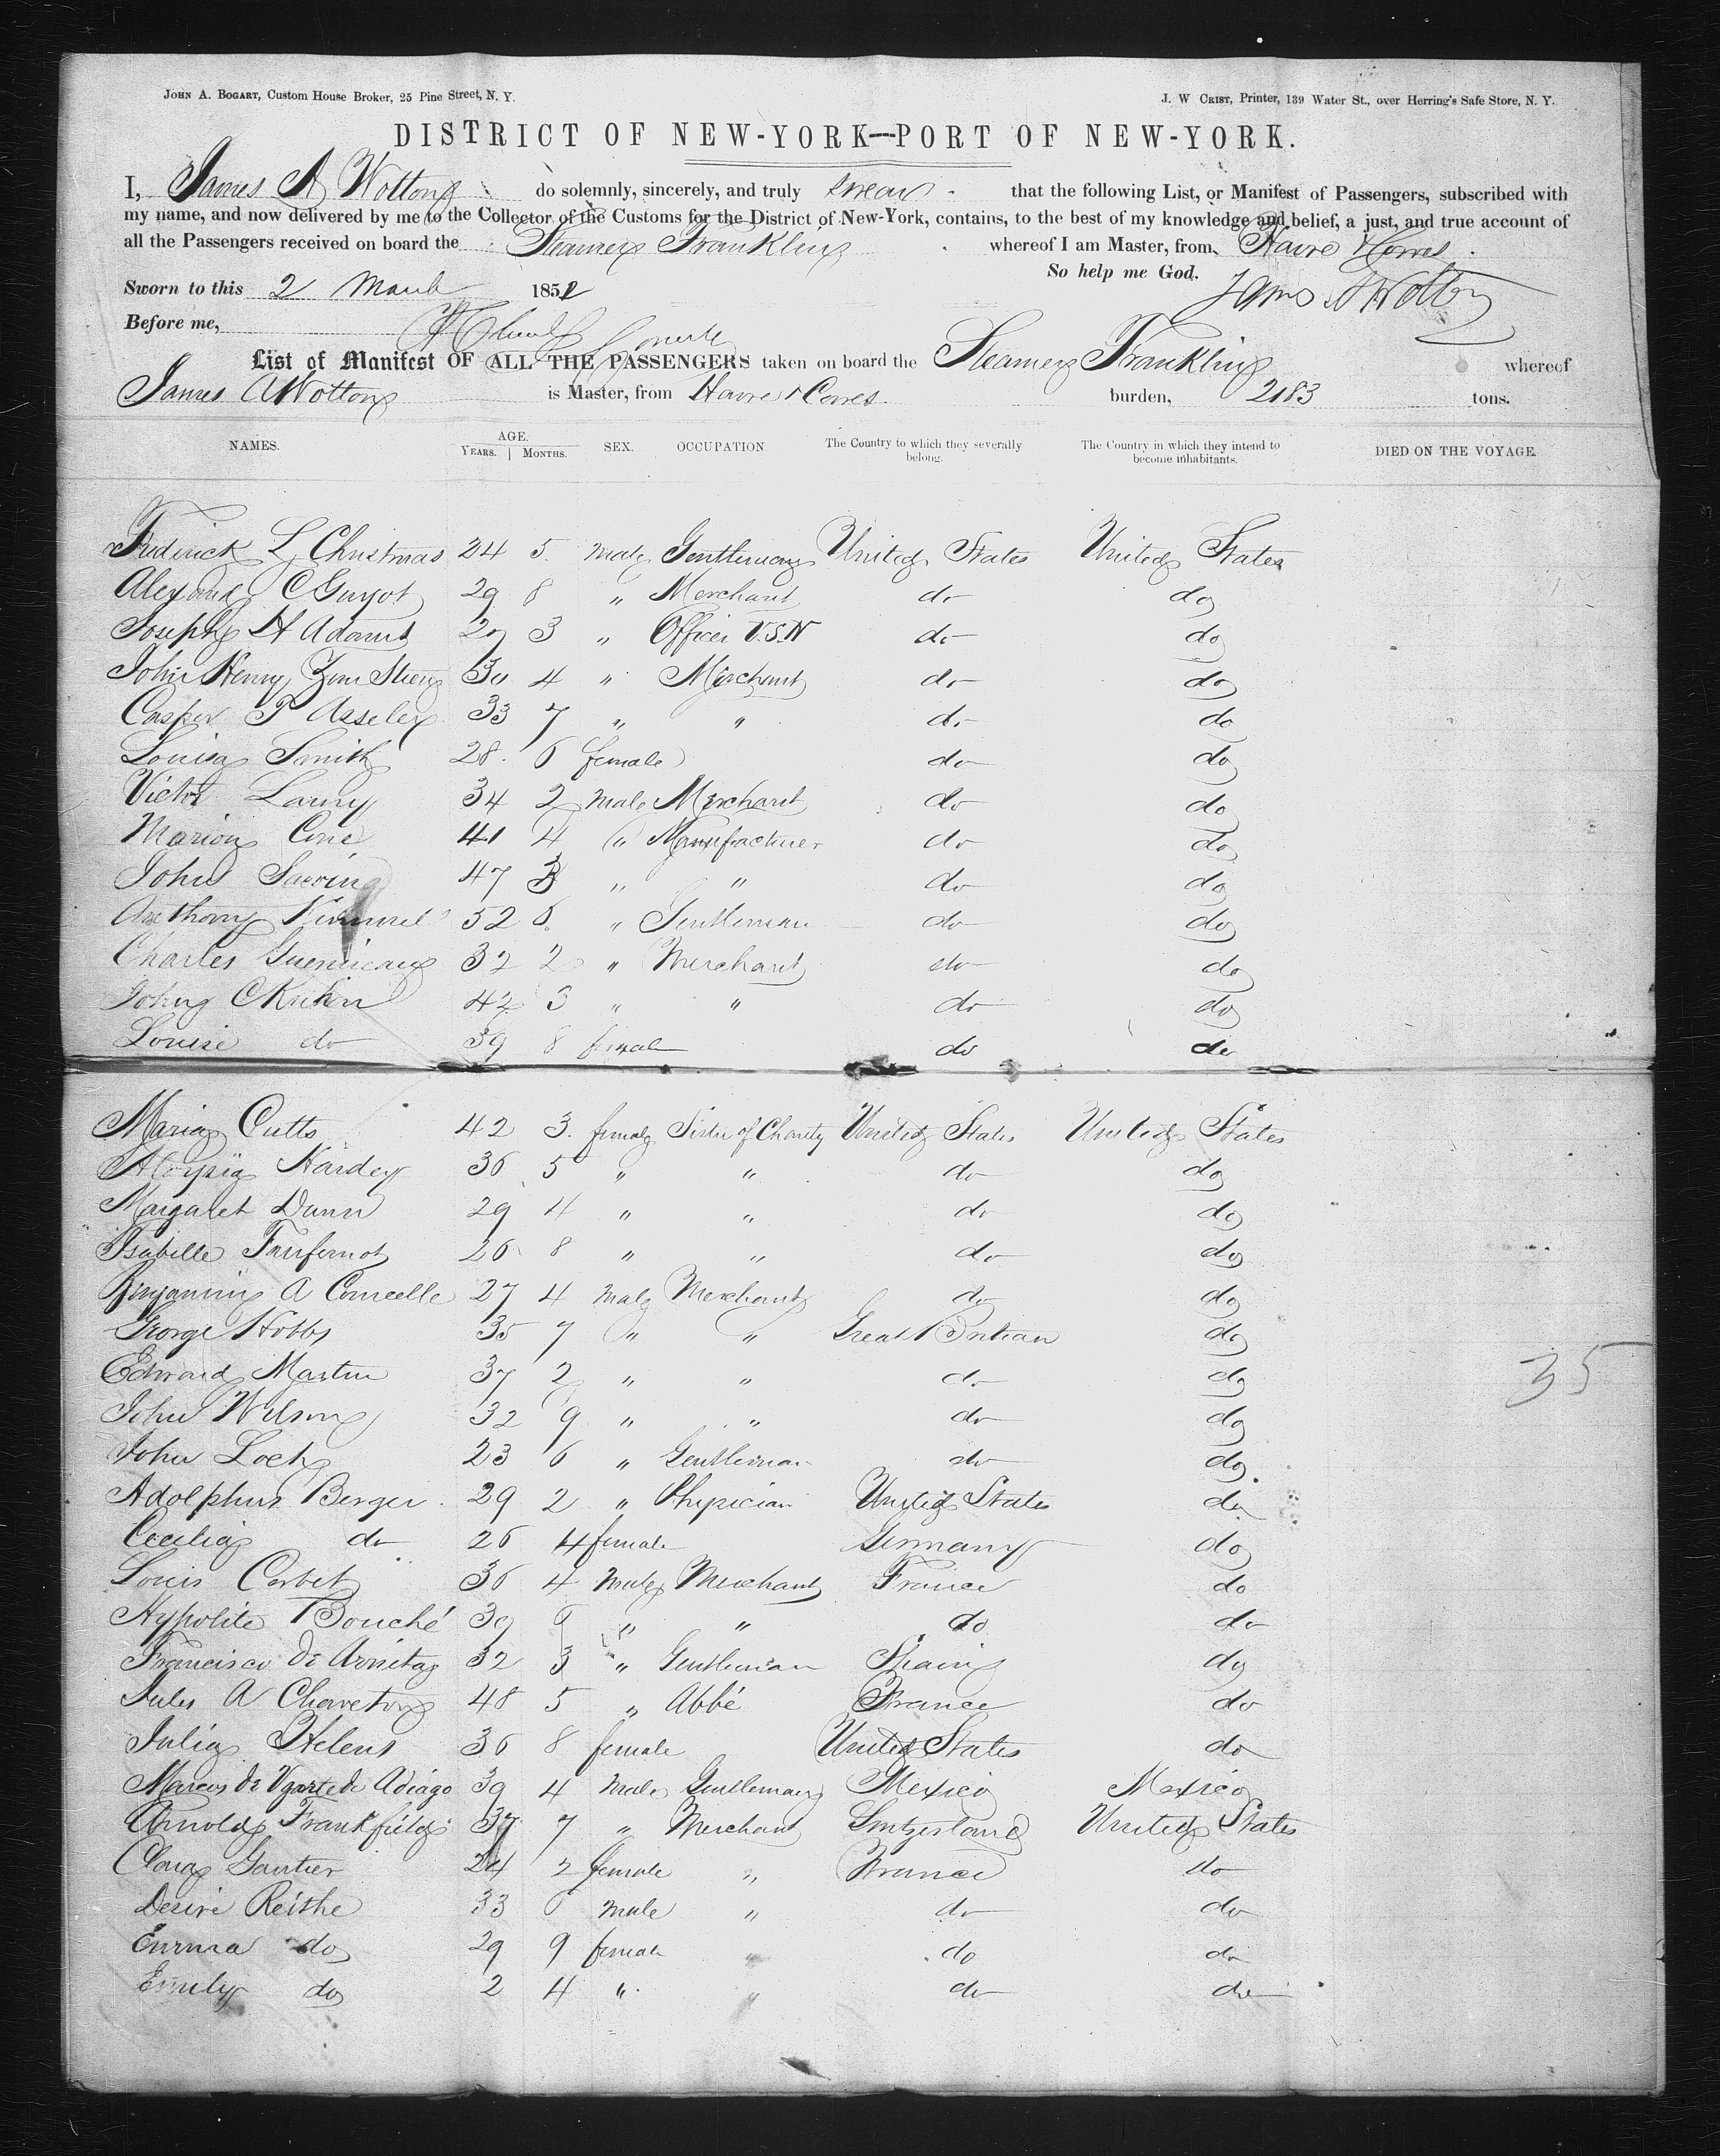 John A. Bogart, Custom House Broker, 25 Pine Street, N. Y.
J. W Crist, Printer, 139 Water St., over Herring's Safe Store, N. Y.
DISTRICT OF NEW-YORK—PORT OF NEW-YORK.
I, James A Wotton do solemnly, sincerely, and truly swear that the following List, or Manifest of Passengers, subscribed with
my name, and now delivered by me to the Collector of the Customs for the District of New-York, contains, to the best of my knowledge and belief, a just, and true account of
all the Passengers received on board the Steamer Franklin whereof I am Master, from Havre & Cowes
So help me God.
Sworn to this 2 March 1852 James A Wotton
Before me,
List of Manifest OF ALL THE PASSENGERS taken on board the Steamer Franklin whereof
James A Wotton is Master, from Havre & Cowes. burden, 2183 tons.
NAMES. AGE. YEARS. | MONTHS. SEX. OCCUPATION. The Country to which they severally belong. The Country in which they intend to become inhabitants. DIED ON THE VOYAGE.
Frederick L Christmas 24 5 male Gentleman United States United States
C Guyot 29 8 " Merchant do do
Joseph H Adams 29 3 " Officer U.S.N do do
John Henry Zum Steeg 30 4 " Merchant do do
Casper 33 7 " " do do
Louisa Smith 28 6 female do do
Victor 34 2 male Merchant do do
Marion 41 4 " Manufacturer do do
John 47 3 " " do do
Anthony Kimmel 52 6 " Gentleman do do
Charles 32 2 " Merchant do do
John C Kuhn 42 3 " " do do
Louise do 39 8 female do do
Maria Cutts 42 3 female Sister of Charity United States United States
Aloysia Hardey 36 5 " " do do
Margaret Dunn 29 4 " " do do
Isabelle 26 8 " " do do
Benjamin A 27 4 male Merchant do do
George Hobbs 35 7 " " Great Britian do
35
Edward Martin 37 2 " " do do
John Wilson 32 9 " " do do
John Loch 23 6 " Gentleman do do
Adolphus Berger 29 2 " Physician United States do
Cecilia do 26 4 female Germany do
Louis Corbet 36 4 male Merchant France do
Hypolite Bouché 39 6 " " do do
Francisco de 32 3 " Gentleman Spain do
Jules A 48 5 " Abbé France do
Julia Helens 36 8 female United States do
Marcus de Ugarte de Adiago 39 4 male Gentleman Mexico Mexico
Arnold Frankfield 37 7 " Merchant Switzerland United States
Clara Gautier 24 2 female " France do
Desire Reithe 33 6 male " do do
Emma do 29 9 female " do do
Emily do 2 4 " " do do